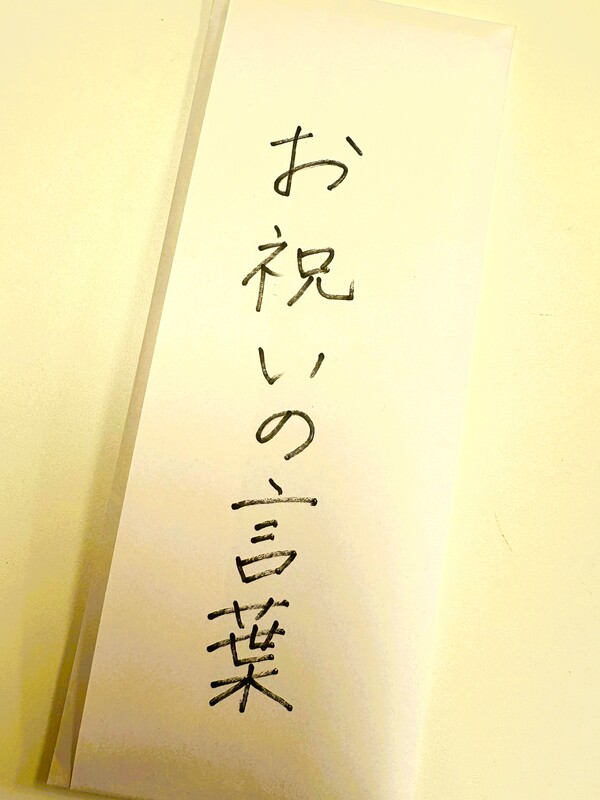 お祝いの言葉